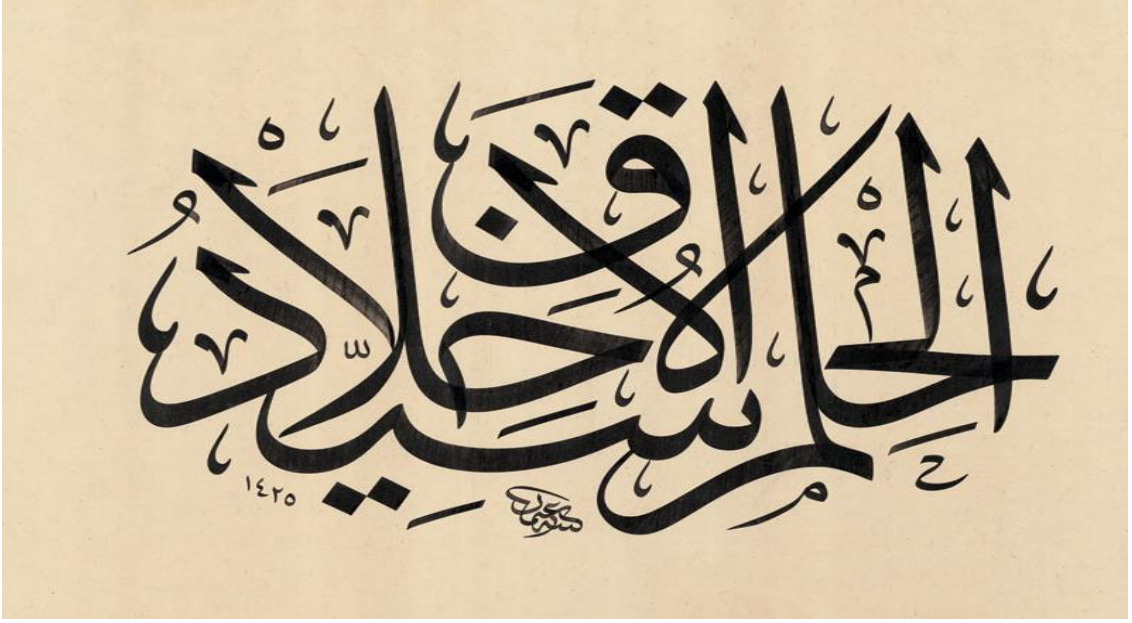 الحِلْمُ سَيِّدُ الاَخْلَاقِ
١٤٢٥